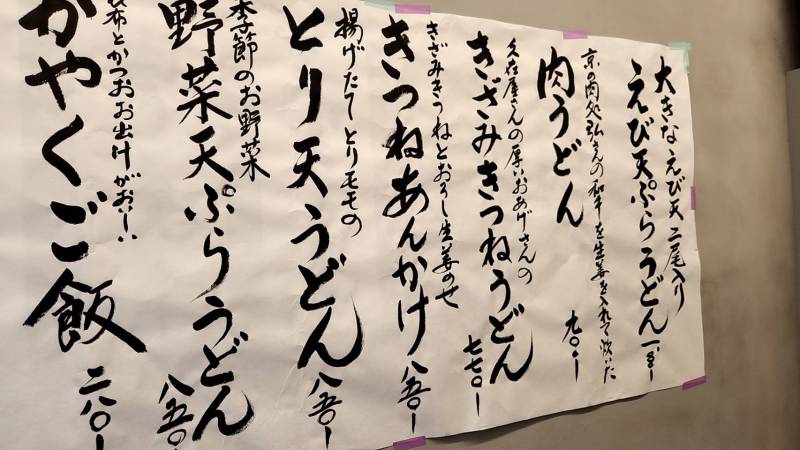 大きなえび天二尾入り
えび天ぷらうどん
京の肉処弘さんの和牛を生姜を入れて炊いた
肉うどん 九〇〇ー
久在屋さんの厚いおあげさんの
きざみきつねうどん 七七〇ー
きざみきつねとおろし生姜のせ
きつねあんかけ 八五〇ー
揚げたてとりモモの
とり天うどん 八五〇ー
季節のお野菜
野菜天ぷらうどん 八五〇
昆布とかつおお出汁がおいしい
かやくご飯 二八〇ー